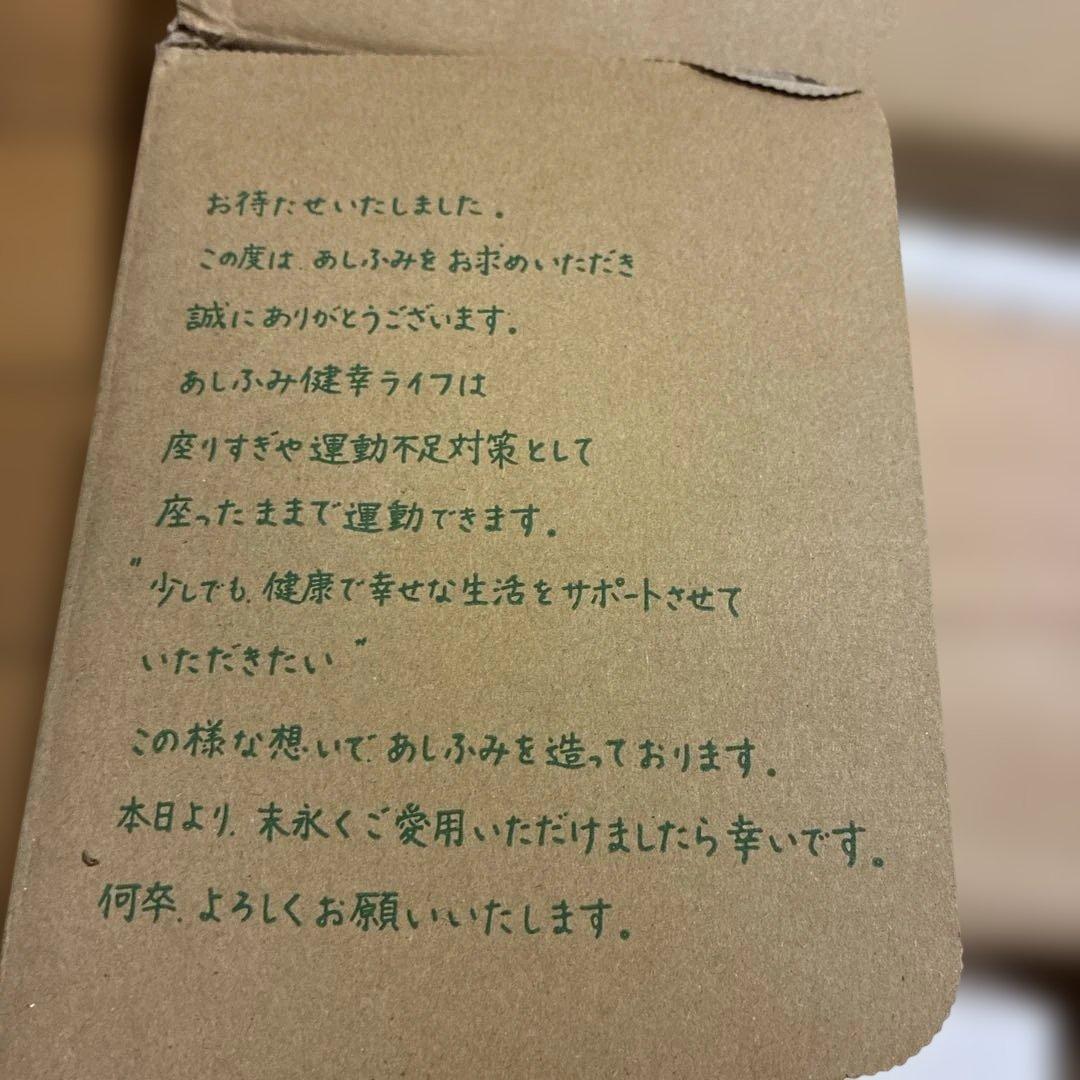 お待たせいたしました。
この度は、あしふみをお求めいただき
誠にありがとうございます。
あしふみ健幸ライフは
座りすぎや運動不足対策として
座ったままで運動できます。
"少しでも、健康で幸せな生活をサポートさせて
いただきたい"
この様な想いで、あしふみを造っております。
本日より、末永くご愛用いただけましたら幸いです。
何卒、よろしくお願いいたします。